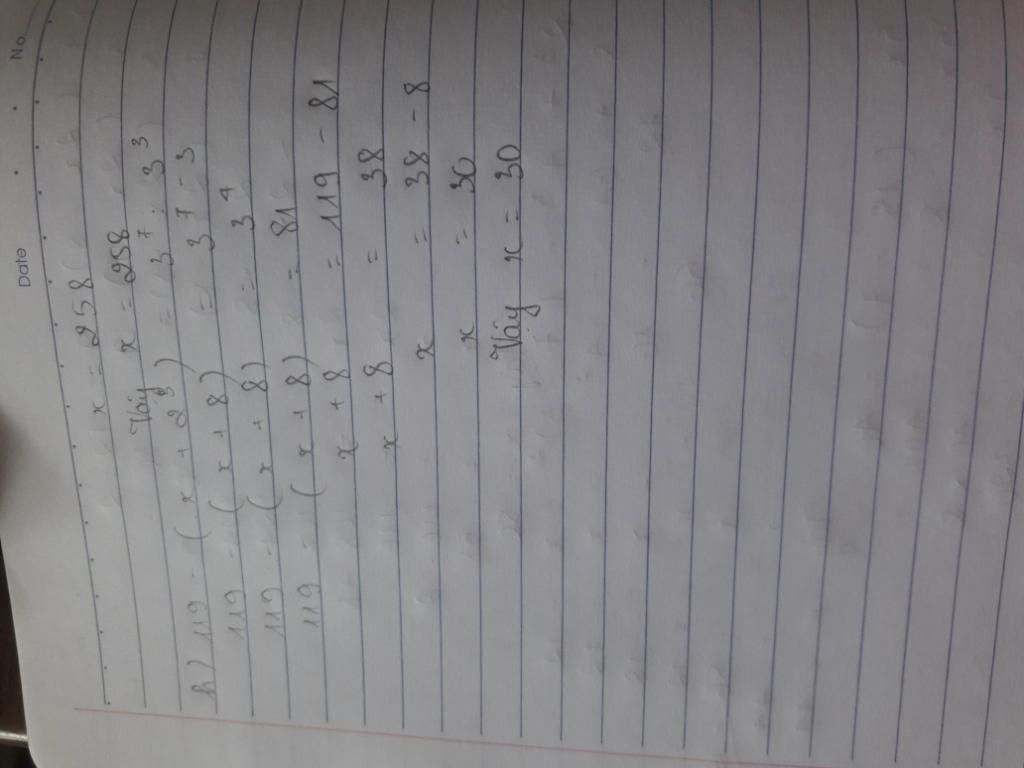 Date No.
x = 258
Vậy x = 258
h) 119 - (x + 2³) = 3⁷ : 3³
119 - (x + 8) = 3⁷⁻³
119 - (x + 8) = 3⁴
119 - (x + 8) = 81
x + 8 = 119 - 81
x + 8 = 38
x = 38 - 8
x = 30
Vậy x = 30